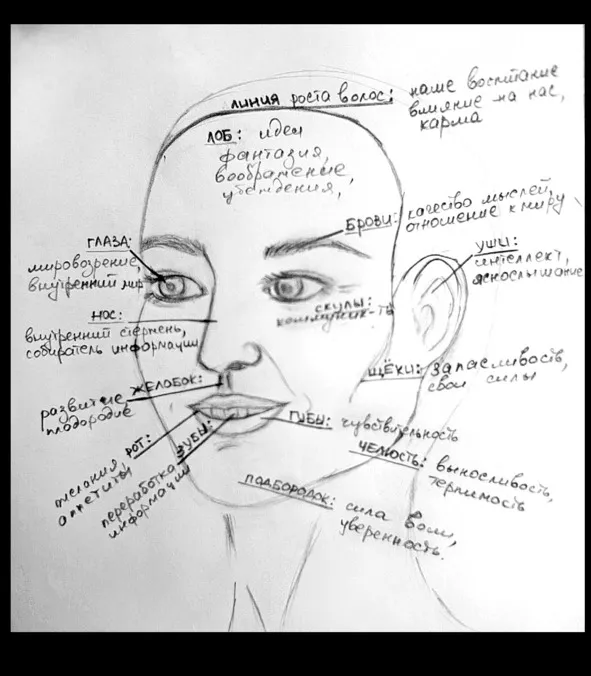 линия роста волос: наше воспитание
влияние на нас,
карма
ЛОБ: идеи
фантазия,
воображение,
убеждения,
Брови: качество мыслей,
отношение к миру
ГЛАЗА:
мировозрение,
внутренний мир
УШИ:
интеллект,
яснослышание
скулы:
коммуник-ть
НОС:
внутренний стержень,
собиратель информации
ЩЁКИ: запасливость,
свои силы
ЖЕЛОБОК:
развитие
плодородие
ГУБЫ: чувствительность
РОТ:
желания,
аппетиты
ЗУБЫ:
переработка
информации
ЧЕЛЮСТЬ: выносливость,
терпимость
ПОДБОРОДОК: сила воли,
уверенность.